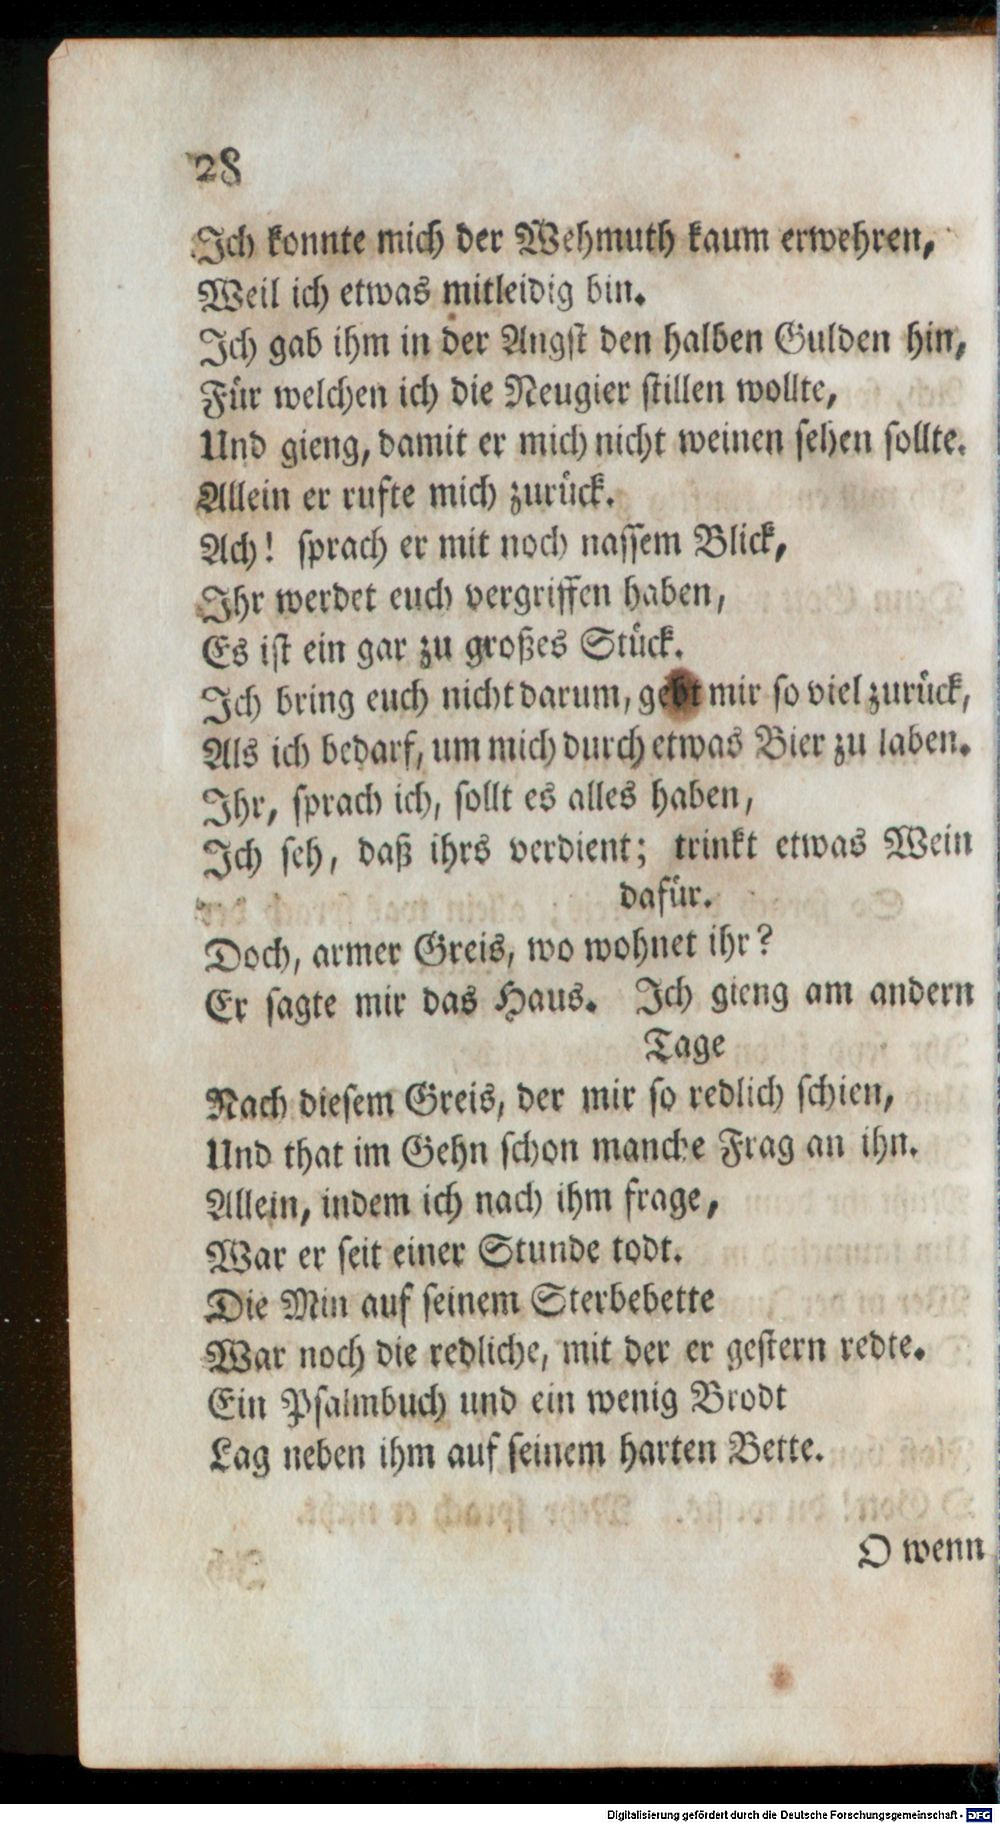 28
Ich konnte mich der Wehmuth kaum erwehren,
Weil ich etwas mitleidig bin.
Ich gab ihm in der Angst den halben Gulden hin,
Für welchen ich die Neugier stillen wollte,
Und gieng, damit er mich nicht weinen sehen sollte.
Allein er rufte mich zurück.
Ach! sprach er mit noch nassem Blick,
Ihr werdet euch vergriffen haben,
Es ist ein gar zu großes Stück.
Ich bring euch nicht darum, gebt mir so viel zurück,
Als ich bedarf, um mich durch etwas Bier zu laben.
Ihr, sprach ich, sollt es alles haben,
Ich seh, daß ihrs verdient; trinkt etwas Wein
dafür.
Doch, armer Greis, wo wohnet ihr?
Er sagte mir das Haus. Ich gieng am andern
Tage
Nach diesem Greis, der mir so redlich schien,
Und that im Gehn schon manche Frag an ihn.
Allein, indem ich nach ihm frage,
War er seit einer Stunde todt.
Die Min auf seinem Sterbebette
War noch die redliche, mit der er gestern redte.
Ein Psalmbuch und ein wenig Brodt
Lag neben ihm auf seinem harten Bette.
O wenn
Digitalisierung gefördert durch die Deutsche Forschungsgemeinschaft - DFG